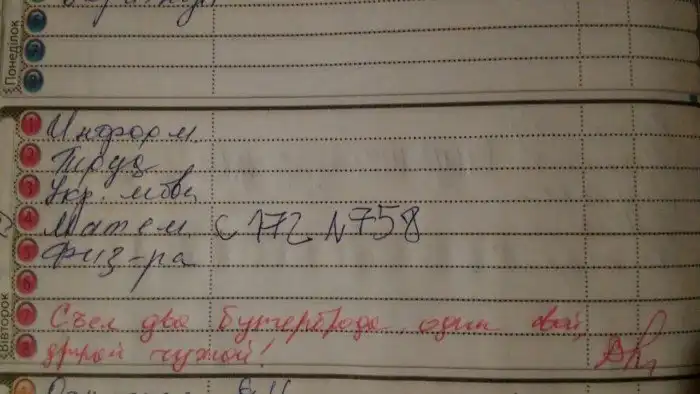 Понеділок
1 Информ.
2 Труд
3 Укр. мова
4 Матем. с 172 №758
5 Физ-ра
6
7 Съел два бутерброда один свой,
8 другой чужой!
Вівторок